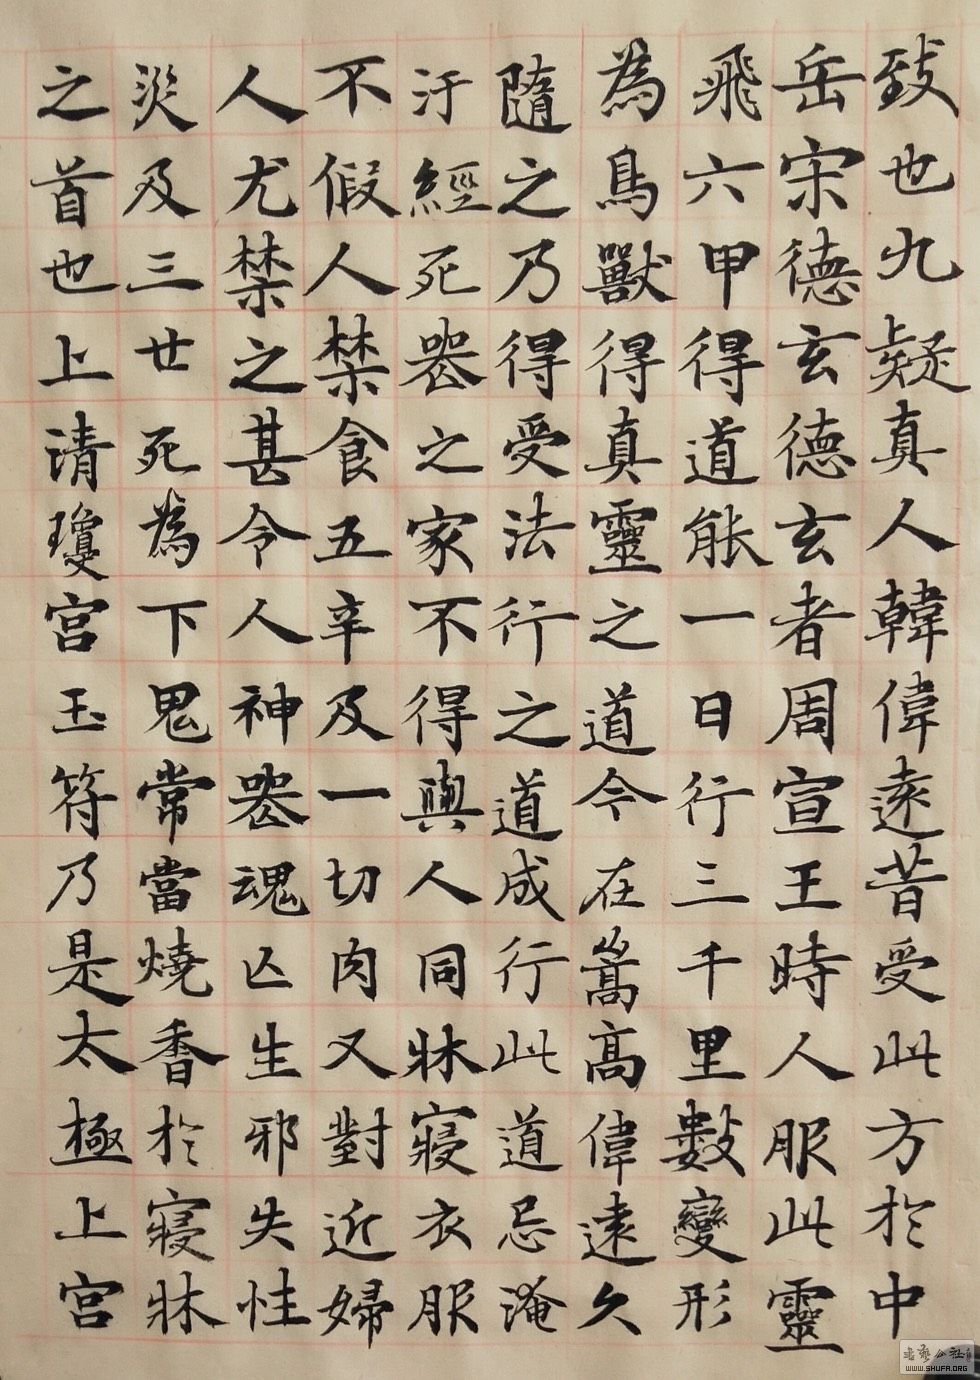 致也九疑真人韓偉遠昔受此方於中
岳宋德玄德玄者周宣王時人服此靈
飛六甲得道能一日行三千里數變形
為鳥獸得真靈之道今在嵩高偉遠久
隨之乃得受法行之道成行此道忌淹
汙經死喪之家不得與人同牀寢衣服
不假人禁食五辛及一切肉又對近婦
人尤禁之甚令人神喪魂亡生邪失性
災及三世死為下鬼常當燒香於寢牀
之首也上清瓊宮玉符乃是太極上宮
WWW.SHUFA.ORG